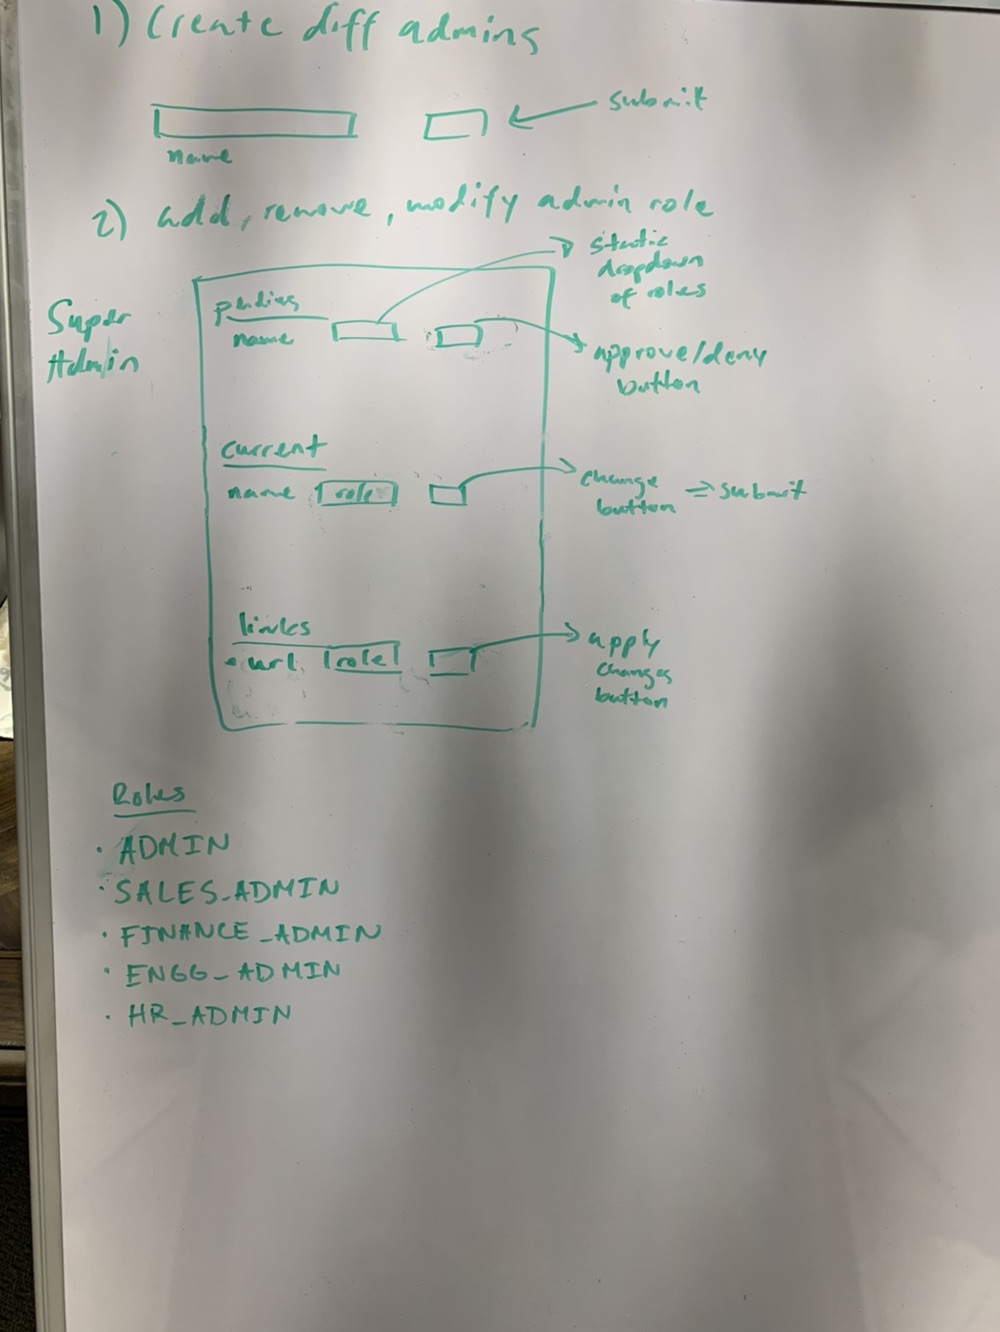 1) Create diff admins
submit
name
2) add, remove, modify admin role
static
dropdown
of roles
Super
Admin
pending
name
approve/deny
button
current
name role
change
button ⇒ submit
links
• url role
apply
changes
button
Roles
· ADMIN
· SALES_ADMIN
· FINANCE_ADMIN
· ENGG_ADMIN
· HR_ADMIN